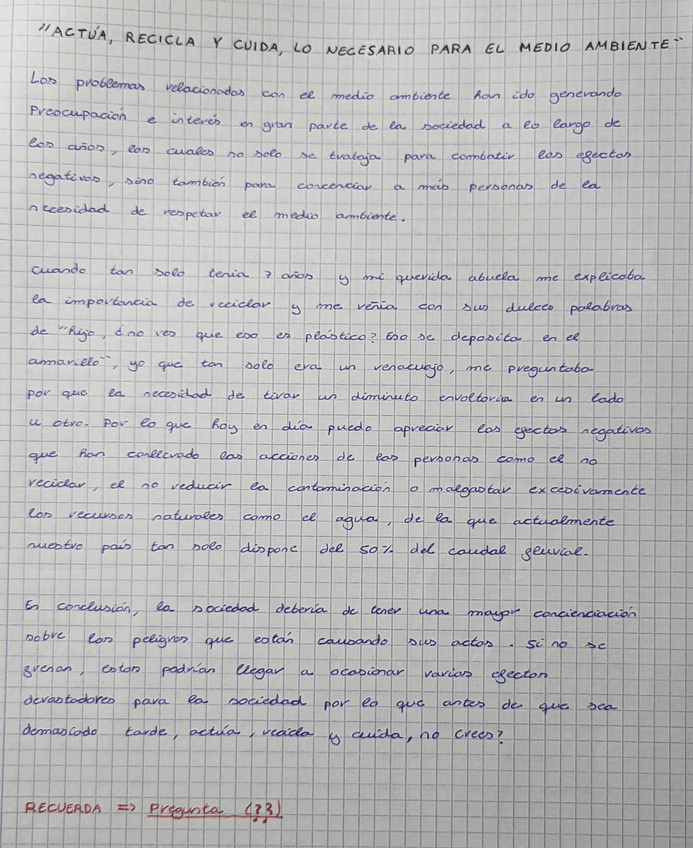 "ACTÚA, RECICLA Y CUIDA, LO NECESARIO PARA EL MEDIO AMBIENTE"
Los problemas relacionados con el medio ambiente han ido generando
Preocupación e interés en gran parte de la sociedad a lo largo de
los años, los cuales no solo se trabaja para combatir los efectos
negativos, sino también para concenciar a más personas de la
necesidad de respetar el medio ambiente.
Cuando tan solo tenia 7 años y mi querida abuela me explicaba
la importancia de reciclar y me venia con sus dulces palabras
de "hijo, ¿no ves que eso es plástico? Eso se deposita en el
amarillo", yo que tan solo era un renacuajo, me preguntaba
por que la necesidad de tirar un diminuto envoltorio en un lado
u otro. Por lo que hoy en día puedo apreciar los efectos negativos
que han conllevado las acciones de las personas como el no
reciclar, el no reducir la contaminación o malgastar excesivamente
los recursos naturales como el agua, de la que actualmente
nuestro país tan solo dispone del 50% del caudal fluvial.
En conclusión, la sociedad debería de tener una mayor concienciación
sobre los peligros que están causando sus actos. Si no se
frenan, estos podrían llegar a ocasionar varios efectos
devastadores para la sociedad por lo que antes de que sea
demasiado tarde, actúa, recicla y cuida, no crees?
RECUERDA => Pregunta (¿?)